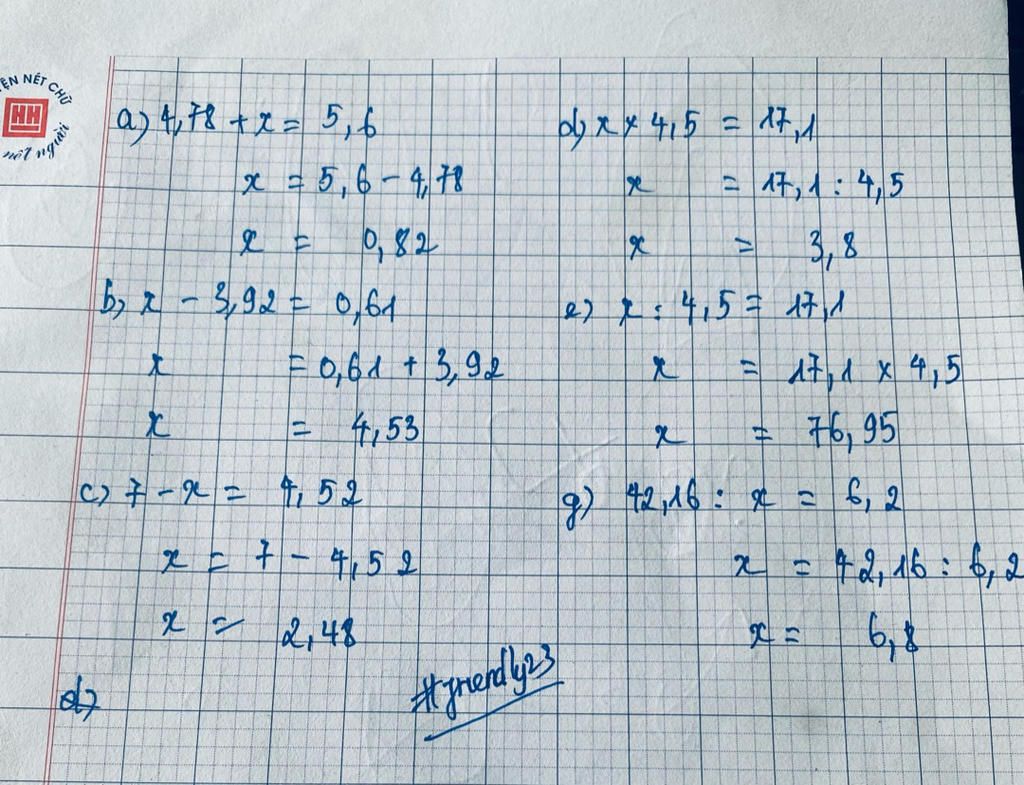 YỆN NÉT CHỮ
HH
nết người
a) 4,78 + x = 5,6
x = 5,6 - 4,78
x = 0,82
b) x - 3,92 = 0,61
x = 0,61 + 3,92
x = 4,53
c) 7 - x = 4,52
x = 7 - 4,52
x = 2,48
d)
d) x × 4,5 = 17,1
x = 17,1 : 4,5
x = 3,8
e) x : 4,5 = 17,1
x = 17,1 × 4,5
x = 76,95
g) 42,16 : x = 6,2
x = 42,16 : 6,2
x = 6,8
#friendly23